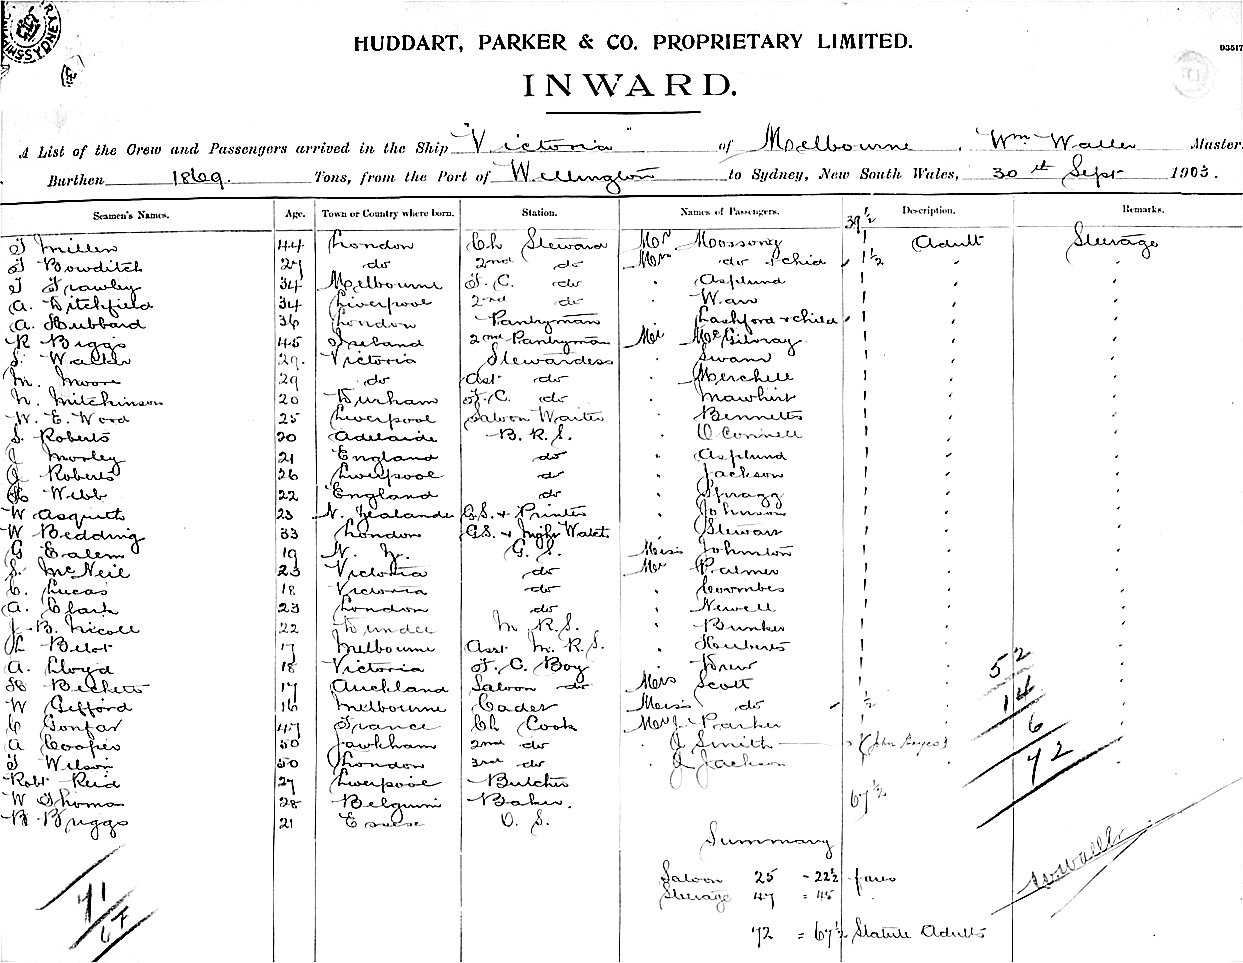 SYDNEY
HUDDART, PARKER & CO. PROPRIETARY LIMITED.
D3517
INWARD.
A List of the Crew and Passengers arrived in the Ship "Victoria" of Melbourne, Wm Waller Master,
Burthen 1869. Tons, from the Port of Wellington to Sydney, New South Wales, 30th Sept 1903.
Seamen's Names. Age. Town or Country where born. Station. Names of Passengers. Description. Remarks.
39 1/2
T Miller 44 London Ch Steward Mr Mossong 1 Adult Steerage
T Bowditch 27 do 2nd do Mrs do & chid 1 1/2 " "
T Frawley 34 Melbourne F. C. do " Asplund 1 " "
A. Ditchfield 34 Liverpool 2nd do " Waw 1 " "
A. Hubbard 36 London Pantryman " Lashford & child 1 " "
R Biggs 45 Ireland 2nd Pantryman McGilvray 1 " "
S. Walker 29. Victoria Stewardess " Swann 1 " "
M. Moore 29 do Asst do " 1 " "
N. Mitchinson 20 Durham F. C. do " Mawhirt 1 " "
W. E. Wood 25 Liverpool Saloon Waiter " Bennetts 1 " "
S. Roberts 20 Adelaide B. R. S. " O'Connell 1 " "
J Morley 21 England do " Asplund 1 " "
J Roberts 26 Liverpool do " Jackson 1 " "
Webb 22 England do " Spragg 1 " "
W Asquith 23 N. Zealand G.S. & Printer " Johnson 1 " "
W Bedding 33 London G.S. & Night Watch " Stewart 1 " "
G Ealem 19 N. Z. G. S. Miss Johnston 1 " "
S. McNeil 23 Victoria do Mr Palmer 1 " "
C. Lucas 18 Victoria do " Coombes 1 " "
A. Clark 23 London do " Newell 1 " "
J. B. Nicoll 22 Dundee M. R. S. " Bunker 1 " "
Belot 17 Melbourne Asst M. R. S. " 1 " "
A. Lloyd 18 Victoria F. C. Boy " Drew 1 " " 52
Beckett 17 Auckland Saloon do Scott 1 " 14
W Gifford 16 Melbourne Cadet Miss do 1/2 " 6
C Gonfar 47 France Ch Cook Parker 1 " 72
A Cooper 50 2nd do J Smith
T Wilson 50 London 3rd do J Jackson
Robt Reid 27 Liverpool Butcher
W Thomas 28 Belguim Baker. 67 1/2
B. Briggs 21 Essex O. S.
Summary
Saloon 25 - 22 1/2 fares
Steerage 47 = 45
72 = 67 1/2 Statute Adults
W Waller
71
67